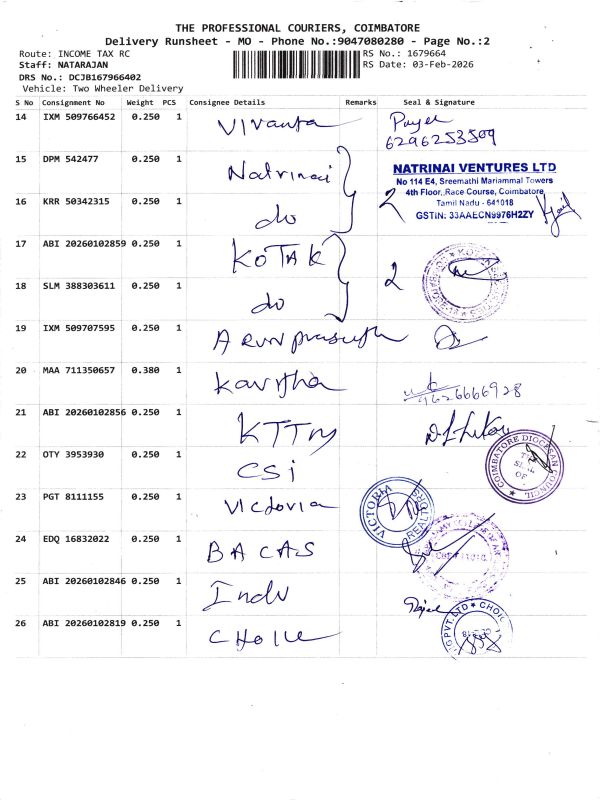 THE PROFESSIONAL COURIERS, COIMBATORE
Delivery Runsheet - MO - Phone No.:9047080280 - Page No.:2
Route: INCOME TAX RC RS No.: 1679664
Staff: NATARAJAN RS Date: 03-Feb-2026
DRS No.: DCJB167966402
Vehicle: Two Wheeler Delivery
S No Consignment No Weight PCS Consignee Details Remarks Seal & Signature
14 IXM 509766452 0.250 1 Vivanta
6296253509
15 DPM 542477 0.250 1 Natrinai
NATRINAI VENTURES LTD
No 114 E4, Sreemathi Mariammal Towers
4th Floor, Race Course, Coimbatore
Tamil Nadu - 641018
GSTIN: 33AAECN9976H2ZY
16 KRR 50342315 0.250 1 do 2
17 ABI 20260102859 0.250 1 KOTAK
18 SLM 388303611 0.250 1 do 2
19 IXM 509707595 0.250 1 Arun prasath
20 MAA 711350657 0.380 1 Kavitha
9626666928
21 ABI 20260102856 0.250 1 KTTM
22 OTY 3953930 0.250 1 CSi
COIMBATORE DIOCESAN COUNCIL
SEAL OF
23 PGT 8111155 0.250 1 Victoria
VICTORIA REALTORS
24 EDQ 16832022 0.250 1 BACAS
25 ABI 20260102846 0.250 1 Indu
26 ABI 20260102819 0.250 1 CHOICE
PVT. LTD CHOIC